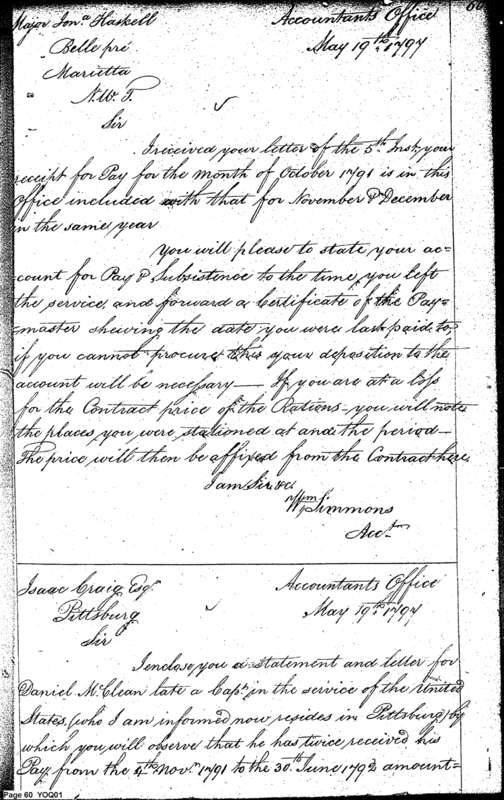 60
Major Jona. Haskell Accountants Office
Belle pré May 19th. 1797
Marietta
N. W. T.
Sir
I received your letter of the 5th. Inst, your
receipt for Pay for the Month of October 1791 is in this
Office included with that for November & December
in the same year
You will please to state, your ac=
count for Pay & Subsistence to the time, you left
the service, and forward a Certificate of the Pay=
=master shewing the date you were last paid to,
if you cannot procure this your deposition to the
account will be necessary — If you are at a loss
for the Contract price of the Rations - you will note
the places you were stationed at and the period —
The price will then be affixed from the Contract here.
I am Sir &c
Wm. Simmons
Acct.
Isaac Craig Esqr. Accountants Office
Pittsburg May 19th. 1797
Sir
I enclose, you a statement and letter for
Daniel McClean late a Capt. in the service of the United
States, (who I am informed now resides in Pittsburg) by
which you will observe that he has twice received his
Pay, from the 4th Novr. 1791 to the 30th June 1792 amount=
Page 60 YOQ01